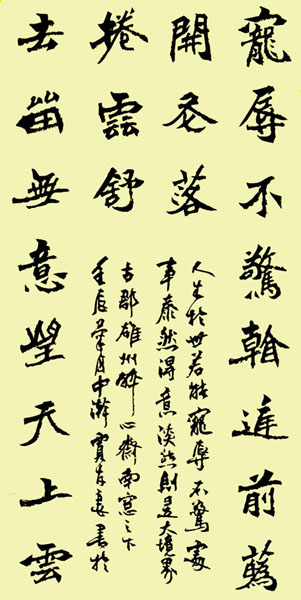 寵辱不驚看廷前花
開花落
人生於世若能寵辱不驚處
事泰然得意淡然則是大境界
去留無意望天上雲
捲雲舒
壬辰月中瀚書於
古郡雄州醉心齋南窗之下